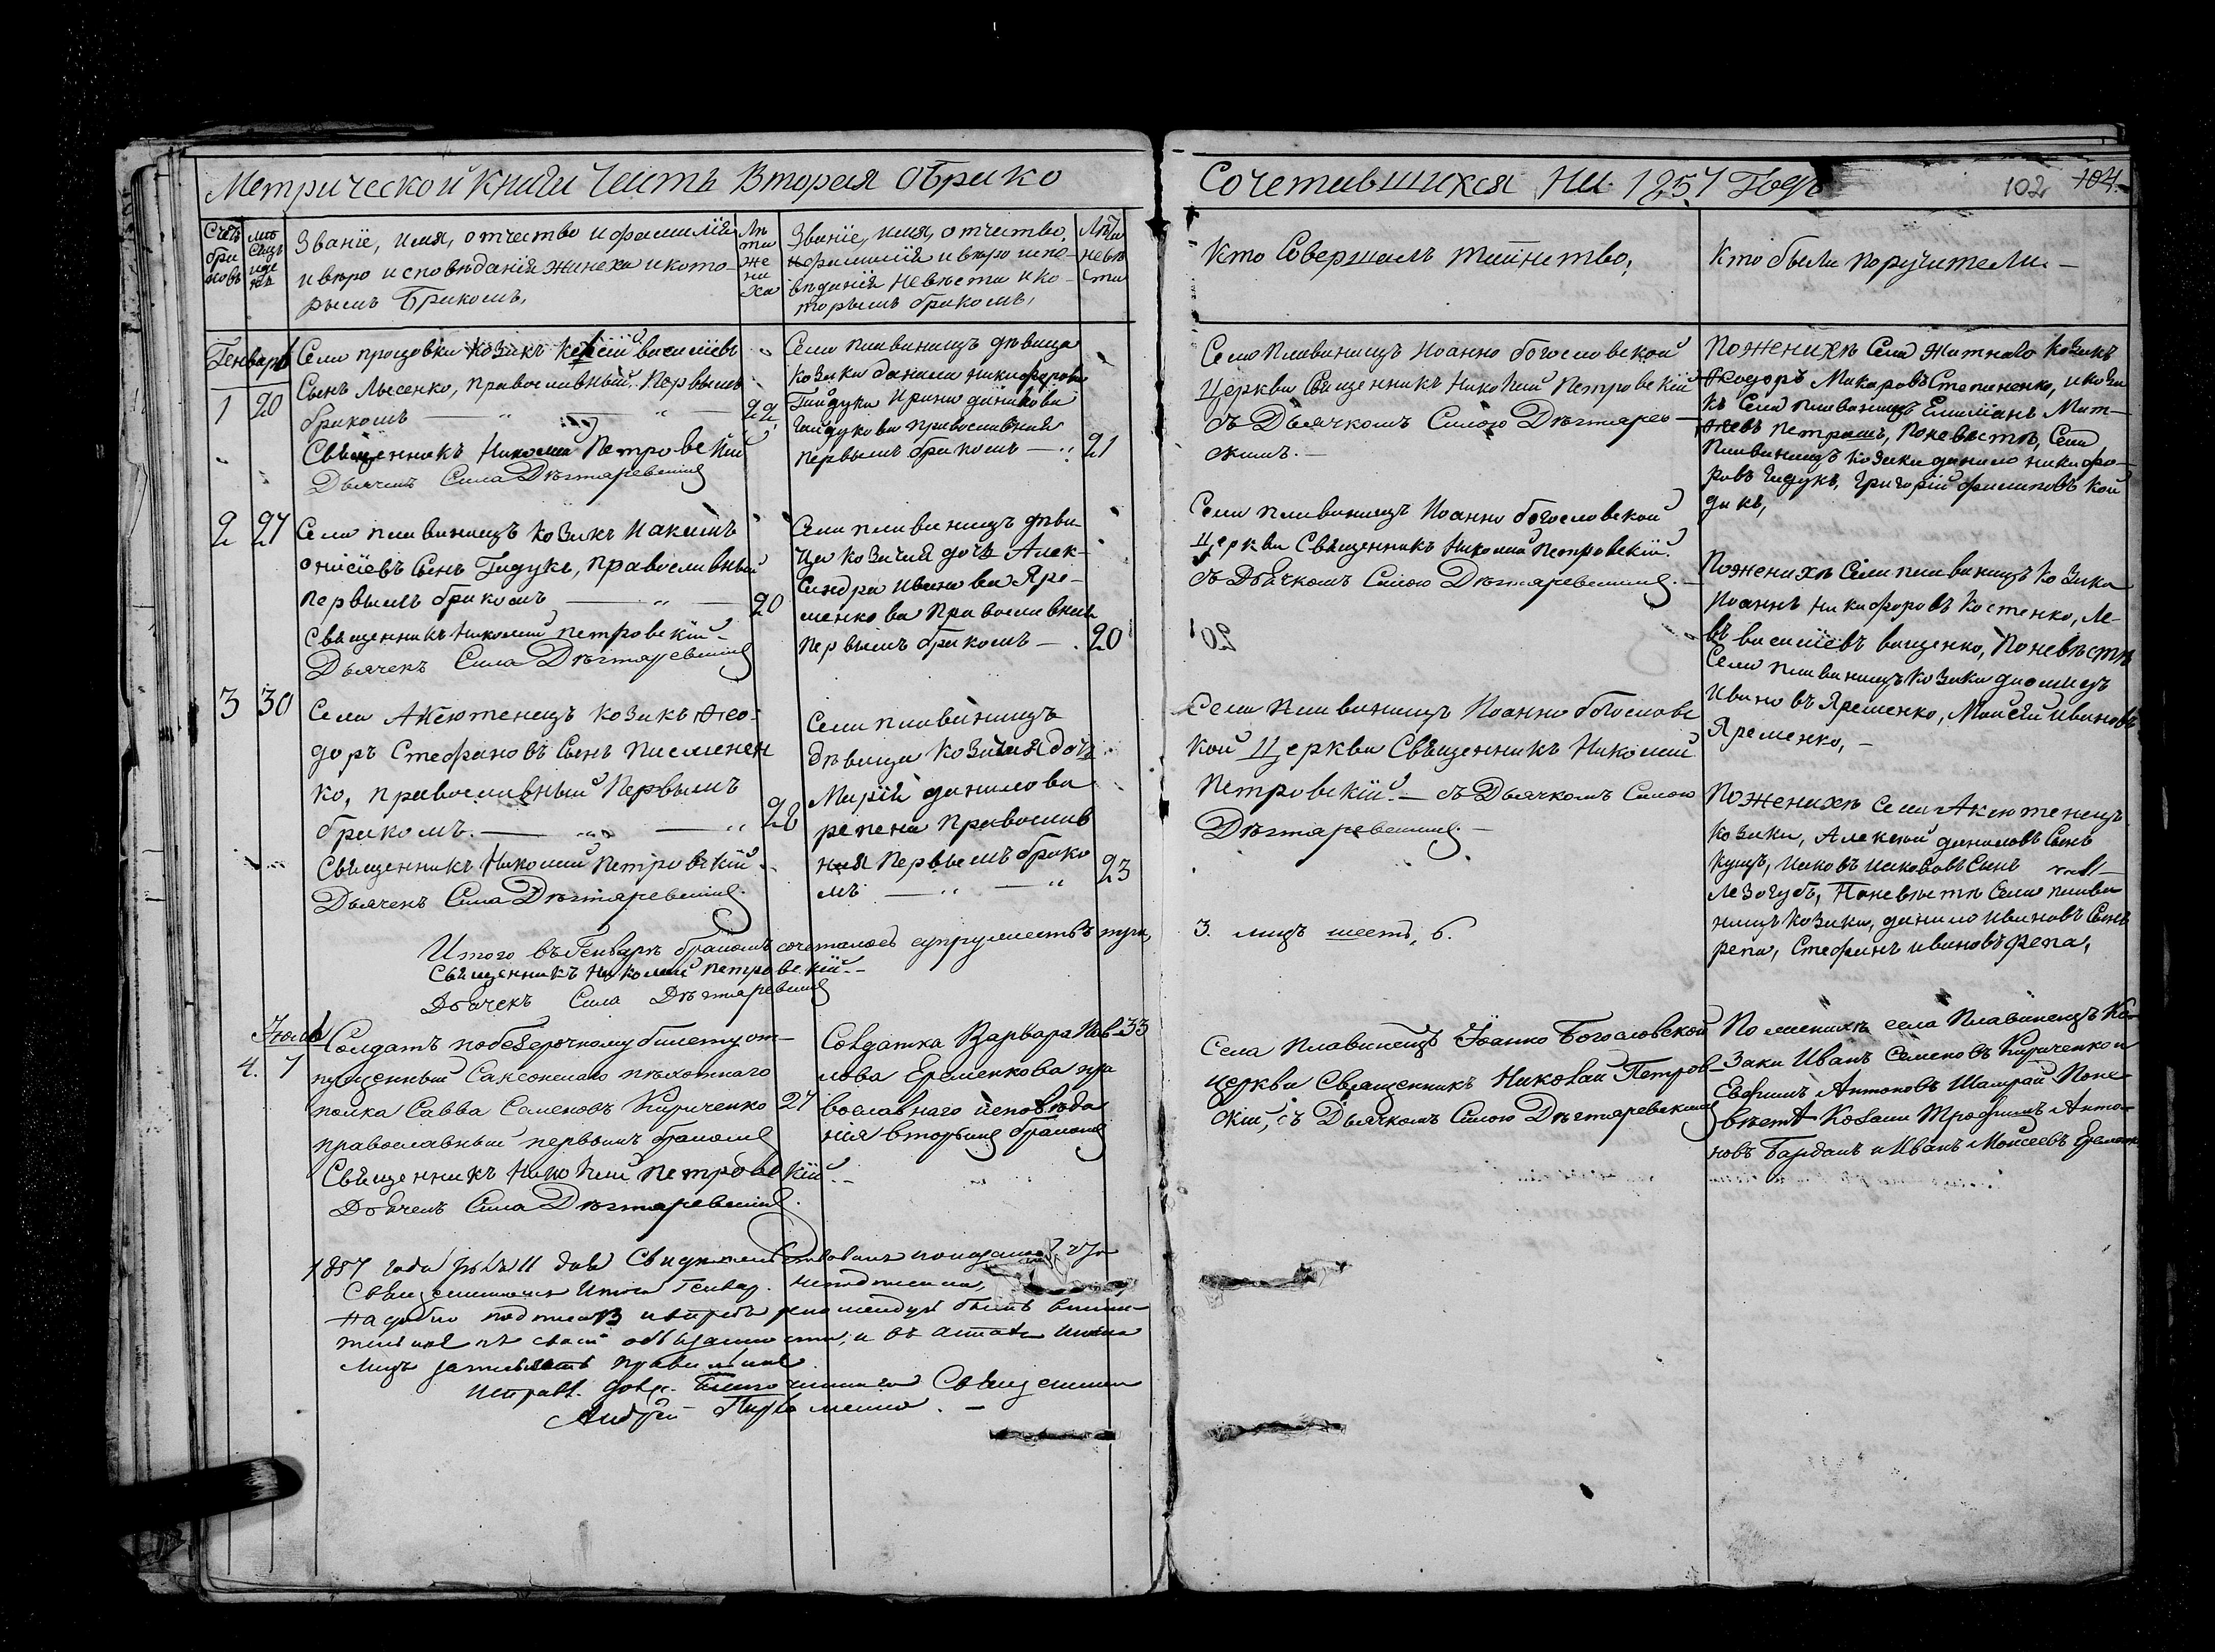 Метрической книги Часть Вторая о брако
Сочетавшихся На 1857 Годъ
102 104.
Счетъ браковъ
Месяцъ и день
Званіе, имя, отчество и фамилія
и веро исповѣданія жениха и кото-
рымъ бракомъ,
Лѣта жениха
Званіе, имя, отчество,
и фамилія и веро испо-
веданія невѣсты и ко-
торымъ бракомъ,
Лѣта невѣсты
Кто Совершалъ таинство,
Кто были поручители. —
Генварь
1 20
Села процовки козакъ василіевъ
Сынъ Лысенко, православный первымъ
бракомъ 22
Священникъ Николай Петровскій
Дьячекъ Сила Дѣгтаревскій
Села плавиницъ дѣвица
козака данила никифорова
Гайдука Ирина данилова
Гайдукова православная
первымъ бракомъ — 21
Села Плавиницъ Иоанно богословской
Церкви Священникъ Николай Петровскій
съ Дьячкомъ Силою Дѣгтарев-
скимъ. —
По женихѣ Села Житнаго козакъ
Ѳеодоръ Макаровъ Степаненко, и коза
къ Села плавиницъ Емиліанъ Мат-
ѳевъ петрашъ, По невѣстѣ, Села
Плавиницъ козаки данило никифо-
ровъ Гидукъ, Григорій филиповъ кой
дакъ,
2 27
Села плавиницъ козакъ Иакимъ
онисіевъ Сынъ Гидукъ, православный
первымъ бракомъ — 20
Священникъ Николай петровскій
Дьячекъ Сила Дѣгтаревскій
Села плавиницъ дѣви-
ца козачая дочь Алек-
сандра Иванова Яре-
менкова Православная
первымъ бракомъ — 20
Села плавиницъ Иоанно богословской
Церкви Священникъ Николай Петровскій.
съ Дьячкомъ Силою Дѣгтаревскимъ. —
По женихѣ Села плавиницъ козаки
Иоаннъ Никифоровъ Костенко, Ле-
въ василіевъ ващенко, По невѣстѣ
Села плавиницъ козаки диомидъ
Ивановъ Яременко, Моисей Ивановъ
Яременко, —
3 30
Села Аксютенецъ козакъ Ѳео-
доръ Стефановъ Сынъ писменен
ко, православный Первымъ
бракомъ. — 28
Священникъ Николай Петровскій
Дьячекъ Сила Дѣгтаревскій.
Села плавиницъ
дѣвица козачая дочь
Марія данилова
репена православ
ная первымъ брако
мъ — 23
Села плавиницъ Иоанно богословс
кой Церкви Священникъ Николай
Петровскій. — съ Дьячкомъ Силою
Дѣгтаревскимъ. —
По женихѣ Села Аксютенецъ
козаки, Алексей даниловъ Сынъ
куцъ, иаковъ иаковъ Сынъ
лезогубъ, По невѣстѣ Села плави
ницъ козаки, данило Ивановъ Сынъ
репа, Стефанъ ивановъ репа,
Итого въ Генварѣ бракомъ сочеталось супружествъ три,
3. лицъ шесть, 6.
Священникъ Николай петровскій. —
Дьячекъ Сила Дѣгтаревскій
Іюль
4. 7
Солдатъ побезсрочному билету от-
пущенный Саксонскаго пѣхотнаго
полка Савва Семеновъ Кириченко 27
православный первымъ бракомъ
Священникъ Николай Петровскій. —
Дьячекъ Сила Дѣгтаревскій.
Солдатка Варвара Пав- 33
лова Еременкова пра
вославнаго исповѣда
нія вторымъ бракомъ
Села Плавинецъ Іоанно Богословской
церкви Священникъ Николай Петров-
скій, съ Дьячкомъ Силою Дѣгтаревскимъ
По женихѣ села Плавинецъ Ко-
заки Иванъ Семеновъ Кириченко и
Евфимъ Антоновъ Шамрай По не-
вѣстѣ Козаки Трофимъ Анто-
новъ Бардакъ и Иванъ Моисеевъ Еременко
1857 года 11 дня Свидѣтельствовалъ
Священникомъ Итогъ Генвар. неподписана,
надобно подписать и впредь рекомендую быть внима-
тельнѣе къ своей обязанности; и въ
лицъ записывать правильнѣе.
исправл. долж. Благочиннаго Священникъ
Андрей